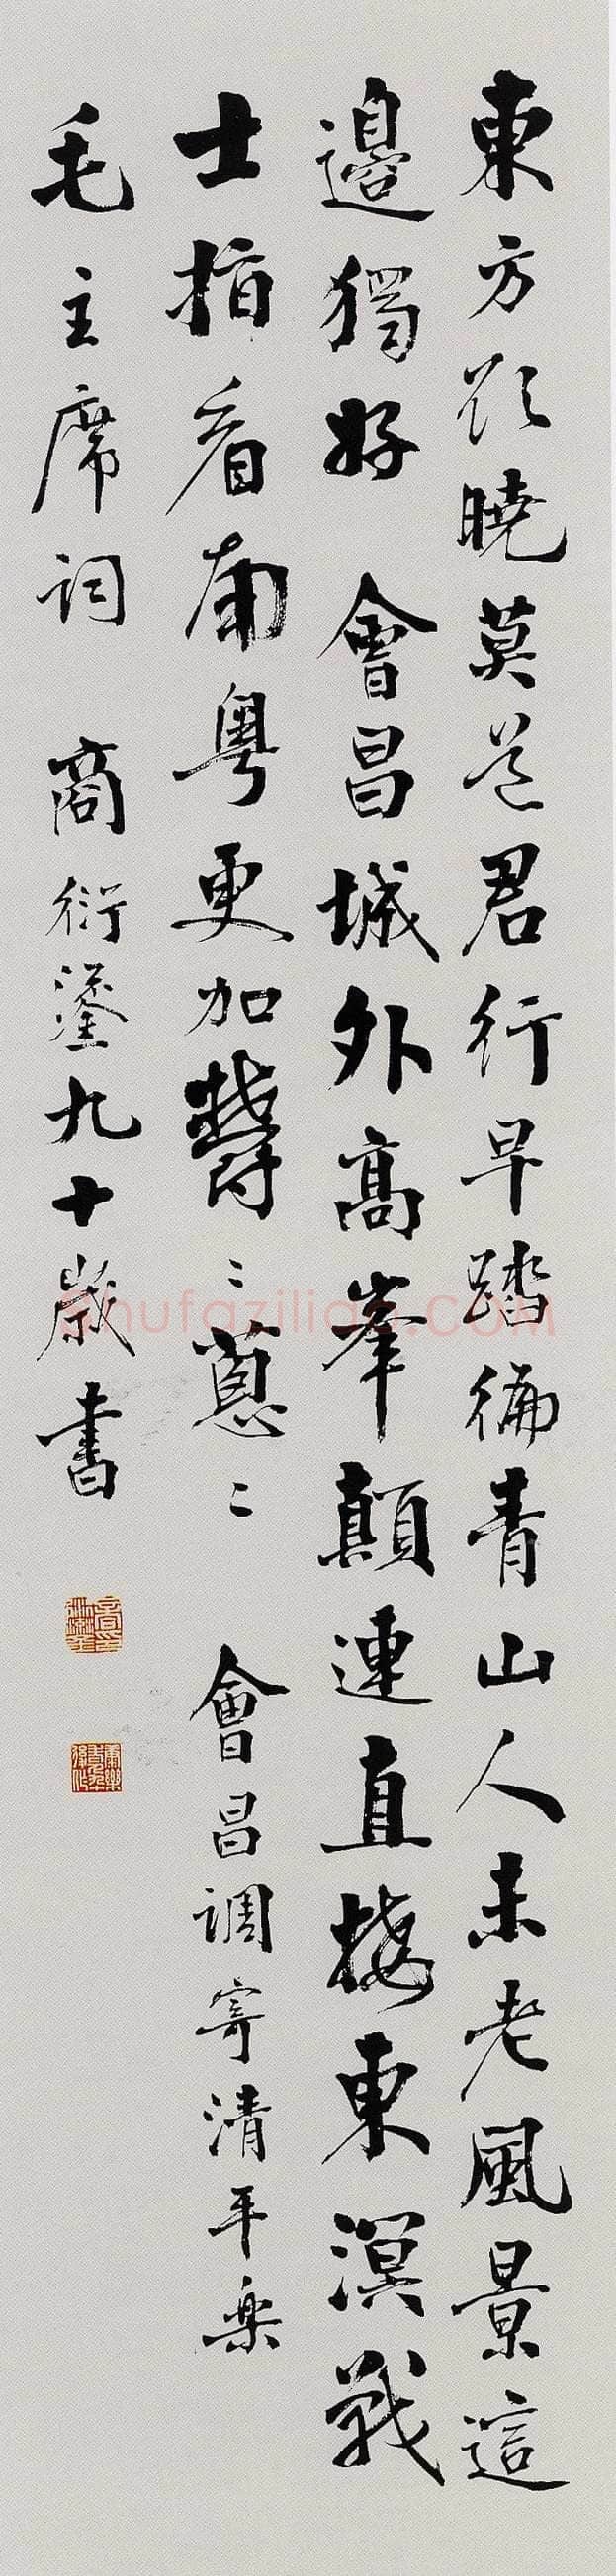 東方欲曉莫道君行早踏徧青山人未老風景這
邊獨好 會昌城外高峯顛連直接東溟戰
士指看南粵更加鬱〻蔥〻 會昌調寄清平樂
毛主席詞 商衍鎏九十歲書
shufaziliao.com